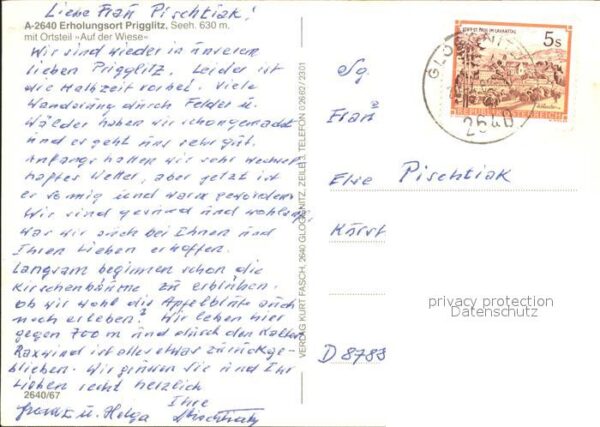 Liebe Frau Pischtiak!
A-2640 Erholungsort Prigglitz, Seeh. 630 m.
mit Ortsteil »Auf der Wiese«
Wir sind wieder in unserem
lieben Prigglitz. Leider ist
die Halbzeit vorbei. Viele
Wanderung durch Felder u.
Wälder haben wir schon gemacht
und es geht uns sehr gut.
Anfangs hatten wir sehr wechsel-
haftes Wetter, aber jetzt ist
er sonnig und warm geworden.
Wir sind gesund und wohlauf,
was wir auch bei Ihnen und
Ihren Lieben erhoffen.
Langsam beginnen schon die
Kirschenbäume zu erblühen.
Ob wir wohl die Apfelblüte auch
noch erleben? Wir leben hier
gegen 700 m und durch den kalten
Raxwind ist alles etwas zurückge-
blieben. Wir grüssen Sie und Ihr
Lieben recht herzlich
Ihre
2640/67
Franz u. Helga
VERLAG KURT FASCH, 2640 GLOGGNITZ, ZEILE 3, TELEFON 02662/2301
STIFT ST. PAUL IM LAVANTTAL
5 S
REPUBLIK ÖSTERREICH
GLOGGNITZ
2640
Sg.
Frau
Else Pischtiak
D 8783
privacy protection
Datenschutz